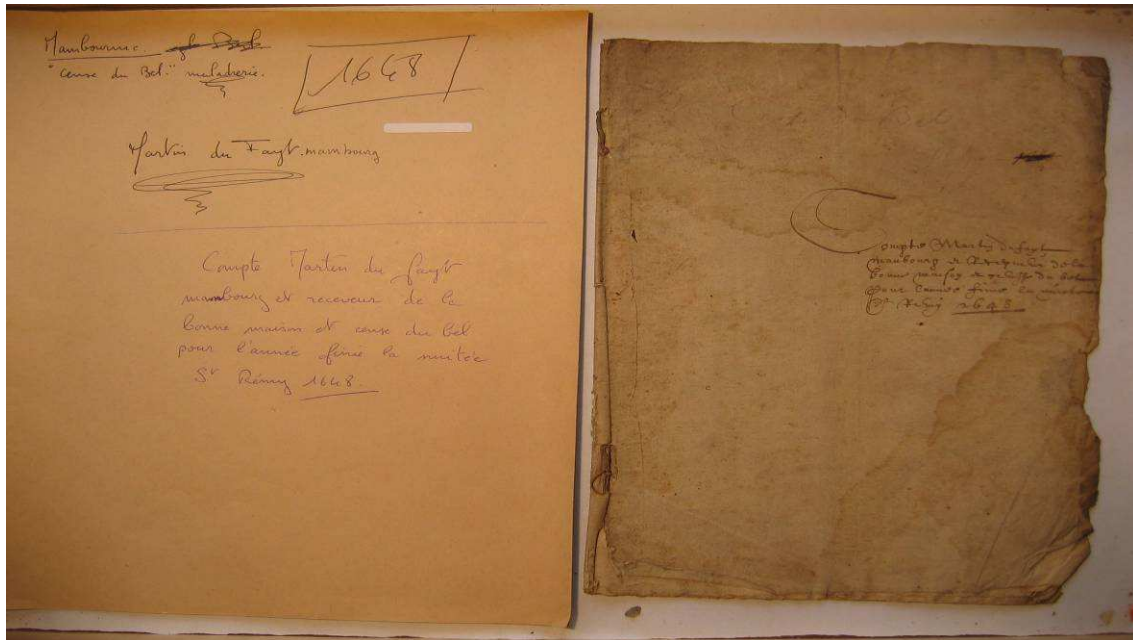 Mambournie.
"cense du Bél." maladrerie.
1648
Martin du Fayt. mambourg
Compte Martin du fayt
mambourg et receveur de la
bonne maison et cense du bél
pour l'année finie la nuitée
St Rémy 1648.
Bel
Compte Martin du fayt
mambourg et Recepveur de la
bonne maison et cense du bel
pour l'annee finie la nuictee
St Remy 1648